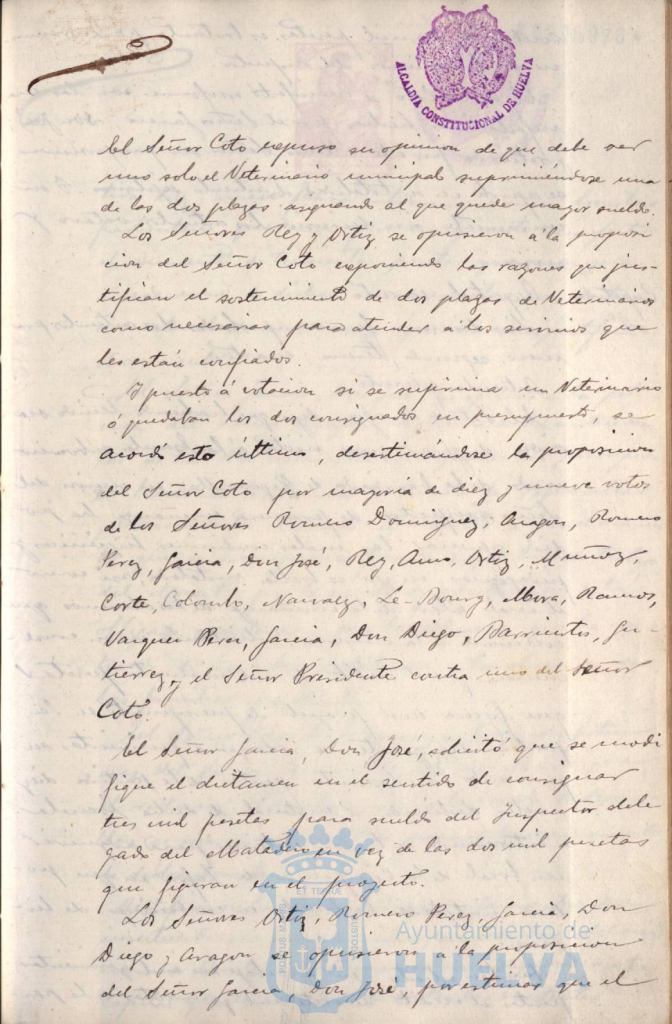 ALCALDIA CONSTITUCIONAL DE HUELVA
El Señor Coto expuso su opinion de que debe ser
uno solo el Veterinario municipal suprimiéndose una
de las dos plazas asignando al que quede mayor sueldo.
Los Señores Rey y Ortiz se opusieron á la proposi
cion del Señor Coto exponiendo las razones que jus-
tifican el sostenimiento de dos plazas de Veterinarios
como necesarias para atender á los servicios que
les están confiados.
Y puesto á votacion si se suprimia un Veterinario
ó quedaban los dos consignados en presupuesto, se
acordó esto último, desestimándose la proposicion
del Señor Coto por mayoría de diez y nueve votos
de los Señores Romero Dominguez, Aragon, Romero
Perez, Garcia, Don José, Rey, Ortiz, Muñoz,
Corte, Colombo, Narvaez, Le-Bourg, Mora, Ramos,
Vazquez Perez, Garcia, Don Diego, Barrientos, Gu-
tierrez y el Señor Presidente contra uno del Señor
Coto.
El Señor Garcia, Don José, solicitó que se modi
fique el dictamen en el sentido de consignar
tres mil pesetas para sueldo del Inspector dele
gado del Matadero en vez de las dos mil pesetas
que figuran en el proyecto.
Los Señores Ortiz, Romero Perez, Garcia, Don
Diego y Aragon se opusieron á la proposicion
del Señor Garcia, Don José, por estimar que el
Ayuntamiento de
HUELVA